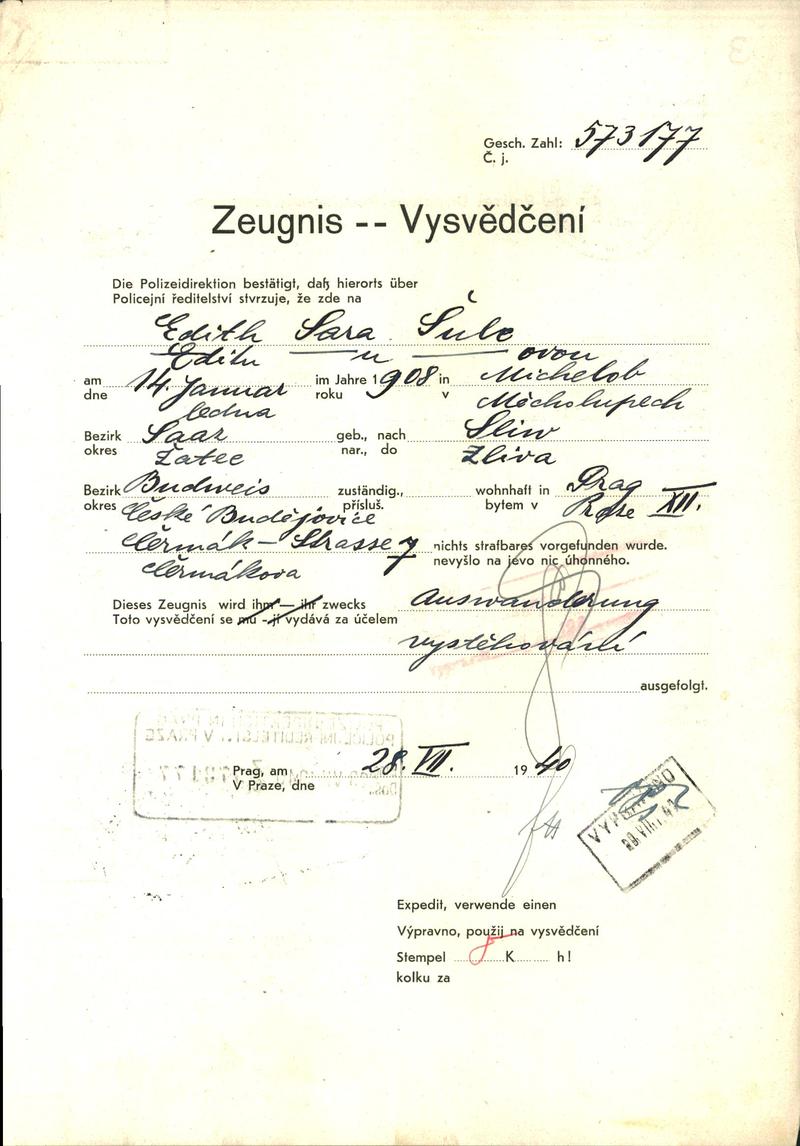 Gesch. Zahl: 573177
Č. j.
Zeugnis -- Vysvědčení
Die Polizeidirektion bestätigt, daß hierorts über
Policejní ředitelství stvrzuje, že zde na
Edith Sara Šulc
Editu — u — ovou
am 14. Januar im Jahre 1908 in Michelob
dne ledna roku v Měcholupech
Bezirk Saaz geb., nach Sliw
okres Žatec nar., do Zliva
Bezirk Budweis zuständig., wohnhaft in Prag
okres České Budějovice přísluš. bytem v Praze XII.
Čermák-Strasse 7 nichts strafbares vorgefunden wurde.
Čermákova nevyšlo na jevo nic úhonného.
Dieses Zeugnis wird ihm — ihr zwecks Auswanderung
Toto vysvědčení se mu - jí vydává za účelem
vystěhování
ausgefolgt.
Prag, am 28. VII. 1940
V Praze, dne
Expedit, verwende einen
Výpravno, použij na vysvědčení
Stempel K h!
kolku za